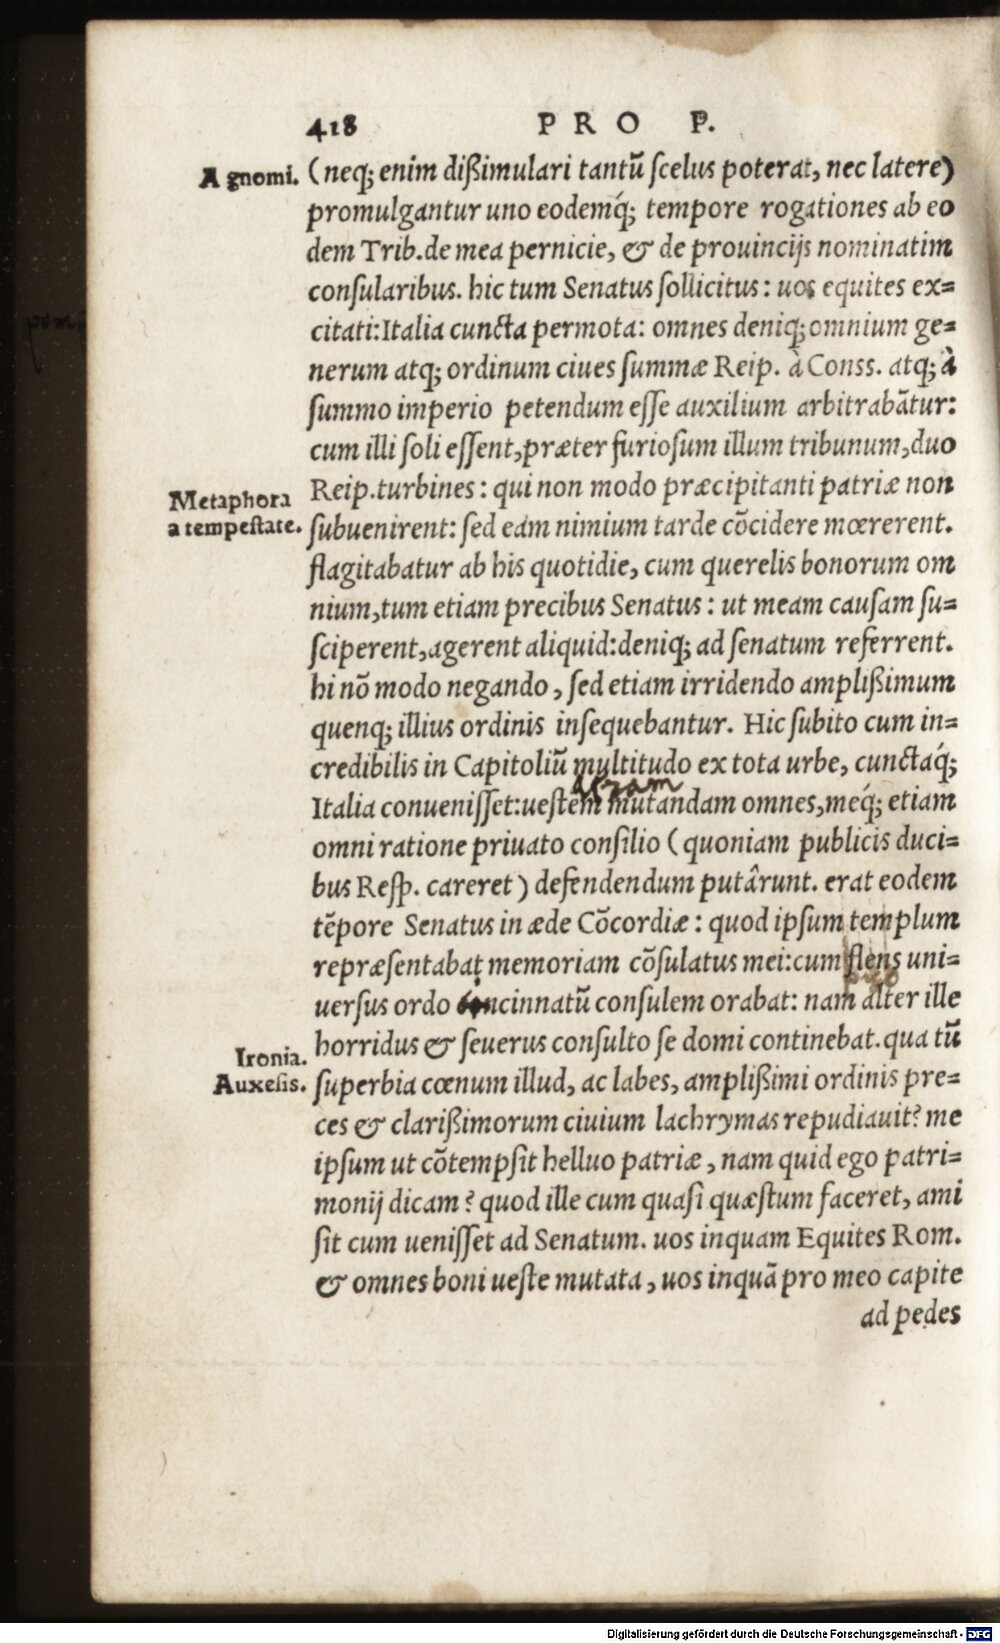 418 PRO P.
A gnomi. (neq; enim dißimulari tantũ ſcelus poterat, nec latere)
promulgantur uno eodemq́; tempore rogationes ab eo
dem Trib. de mea pernicie, & de prouincijs nominatim
conſularibus. hic tum Senatus ſollicitus: uos equites ex=
citati: Italia cuncta permota: omnes deniq; omnium ge=
nerum atq; ordinum ciues ſummæ Reip. à Conss. atq; à
ſummo imperio petendum eſſe auxilium arbitrabãtur:
cum illi ſoli eſſent, præter furioſum illum tribunum, duo
Metaphora Reip. turbines: qui non modo præcipitanti patriæ non
a tempeſtate. ſubuenirent: ſed eam nimium tarde cõcidere mœrerent.
flagitabatur ab his quotidie, cum querelis bonorum om
nium, tum etiam precibus Senatus: ut meam cauſam ſu=
ſciperent, agerent aliquid: deniq; ad ſenatum referrent.
hi nõ modo negando, ſed etiam irridendo amplißimum
quenq; illius ordinis inſequebantur. Hic ſubito cum in=
credibilis in Capitoliũ multitudo ex tota urbe, cunctaq́;
Italia conueniſſet: ueſtem mutandam omnes, meq́; etiam
omni ratione priuato conſilio (quoniam publicis duci=
bus Reſp. careret) defendendum putârunt. erat eodem
tẽpore Senatus in æde Cõcordiæ: quod ipſum templum
repræſentabat memoriam cõſulatus mei: cum flens uni=
uerſus ordo concinnatũ conſulem orabat: nam alter ille
horridus & ſeuerus conſulto ſe domi continebat. qua tũ
Ironia.
Auxeſis. ſuperbia cœnum illud, ac labes, amplißimi ordinis pre=
ces & clarißimorum ciuium lachrymas repudiauit? me
ipſum ut cõtempſit helluo patriæ, nam quid ego patri=
monij dicam? quod ille cum quaſi quæſtum faceret, ami
ſit cum ueniſſet ad Senatum. uos inquam Equites Rom.
& omnes boni ueſte mutata, uos inquã pro meo capite
ad pedes
Digitalisierung gefördert durch die Deutsche Forschungsgemeinschaft - DFG